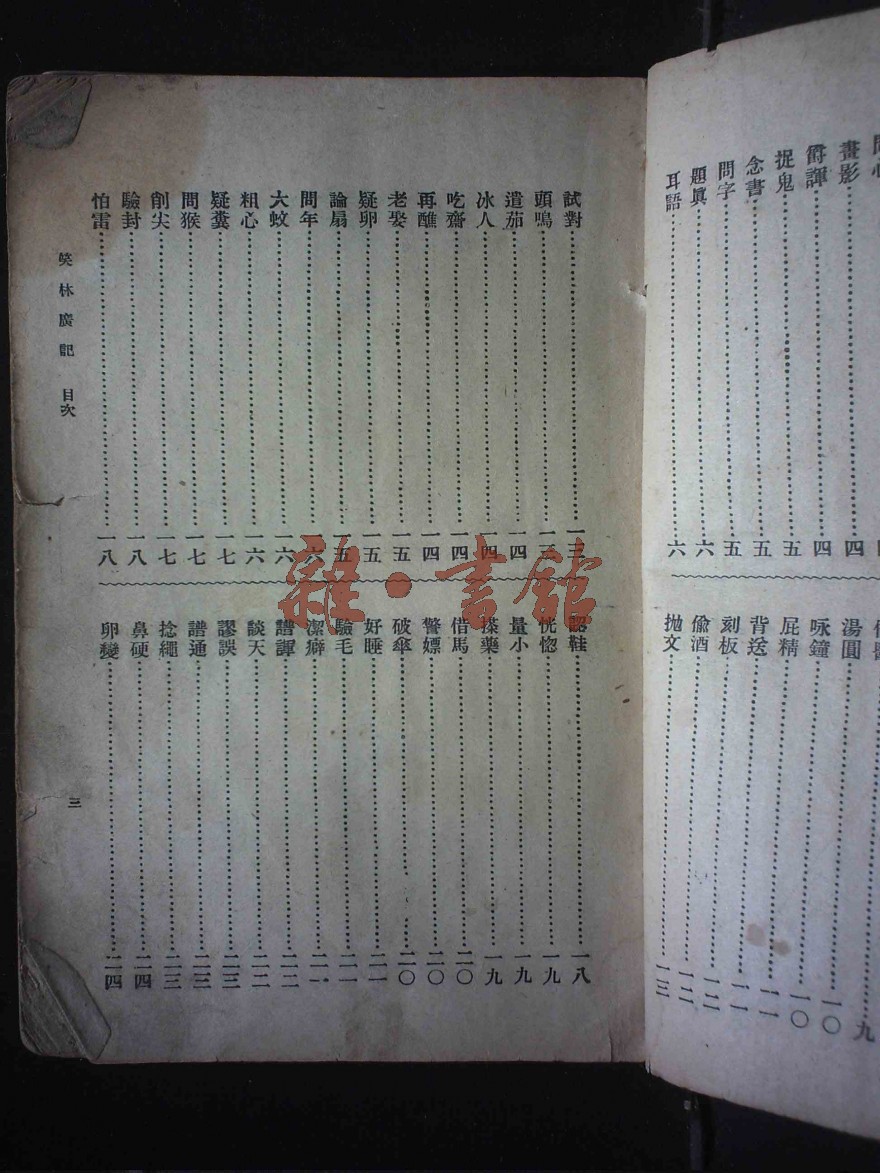 畫影……四
爵諢……四
捉鬼……五
念書……五
問字……五
題真……六
耳語……六
湯圓……九
咏鐘……一〇
屁精……一〇
背送……一一
刻板……一一
偷酒……一二
拋文……一三
試對……一三
頭鳴……一三
遣茄……一四
冰人……一四
吃齋……一四
再醮……一四
老娶……一五
疑卵……一五
論扇……一五
問年……一六
六蚊……一六
粗心……一六
疑糞……一七
問猴……一七
削尖……一七
驗封……一八
怕雷……一八
認鞋……一八
恍惚……一九
量小……一九
搽藥……一九
借馬……二〇
警嫖……二〇
破傘……二〇
好睡……二一
驗毛……二一
潔癖……二一
譜諢……二二
談天……二二
謬誤……二三
譜通……二三
捻繩……二三
鼻硬……二四
卵變……二四
笑林廣記 目次
三
雜·書館